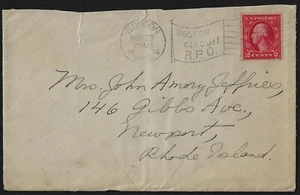 BOSTON
BOSTON
CIRCUIT
R.P.O.
U.S. POSTAGE
2 CENTS 2
Mrs. John Amory Jeffries,
146 Gibbs Ave,
Newport,
Rhode Island.